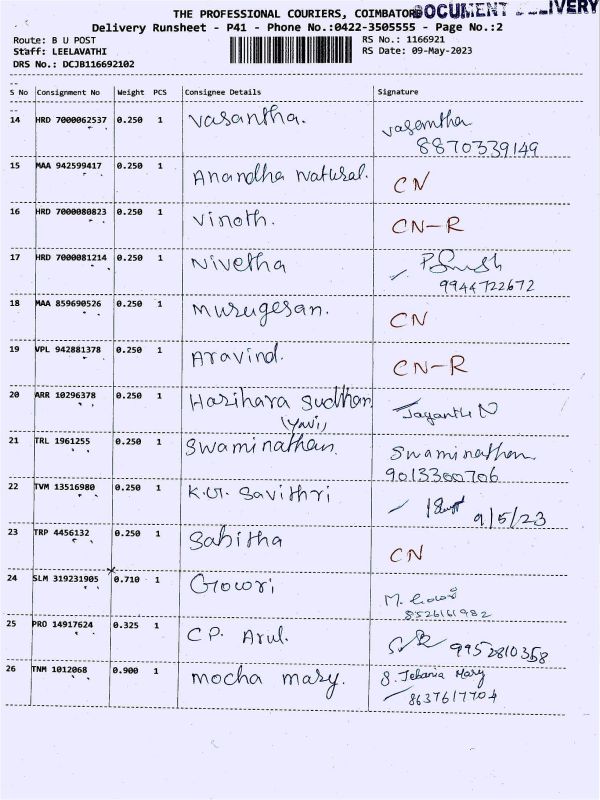 THE PROFESSIONAL COURIERS, COIMBATORE
DOCUMENT DELIVERY
Delivery Runsheet - P41 - Phone No.:0422-3505555 - Page No.:2
Route: B U POST
RS No.: 1166921
Staff: LEELAVATHI
RS Date: 09-May-2023
DRS No.: DCJB116692102
S No Consignment No Weight PCS Consignee Details Signature
14 HRD 7000062537 0.250 1 Vasantha. Vasantha
8870339149
15 MAA 942599417 0.250 1 Anandha Natural. CN
16 HRD 7000080823 0.250 1 Vinoth. CN-R
17 HRD 7000081214 0.250 1 Nivetha
9944722672
18 MAA 859690526 0.250 1 Murugesan. CN
19 VPL 942881378 0.250 1 Aravind. CN-R
20 ARR 10296378 0.250 1 Harihara Sudhan Jayanthi N
(Yavi)
21 TRL 1961255 0.250 1 Swaminathan. Swaminathan
9013300706
22 TVM 13516980 0.250 1 K.G. Savithri 9/5/23
23 TRP 4456132 0.250 1 Sabitha CN
24 SLM 319231905 0.710 1 Gowri M. Gowri
8526161982
25 PRO 14917624 0.325 1 CP. Arul. 9952810358
26 TNM 1012068 0.900 1 mocha mary. S. Jebania Mary
8637617704